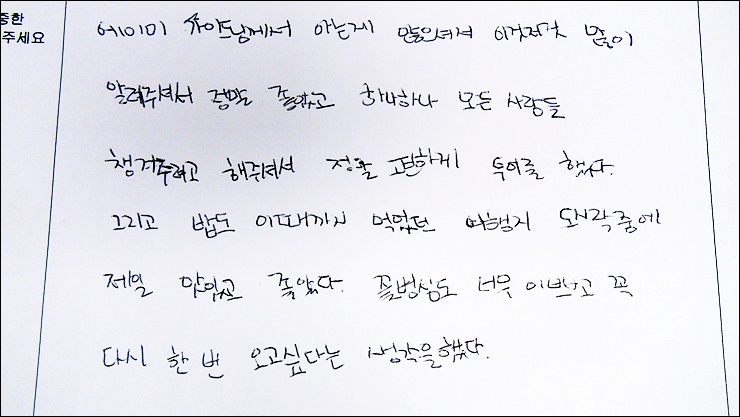 중한
주세요
에이미 가이드님께서 아는게 많으셔서 이것저것 많이
알려주셔서 정말 좋았고 하나하나 모든 사람들
챙겨주려고 해주셔서 정말 편하게 투어를 했다.
그리고 밥도 이때까지 먹었던 여행지 도시락중에
제일 맛있고 좋았다. 졸병심도 너무 이쁘고 꼭
다시 한 번 오고싶다는 생각을했다.